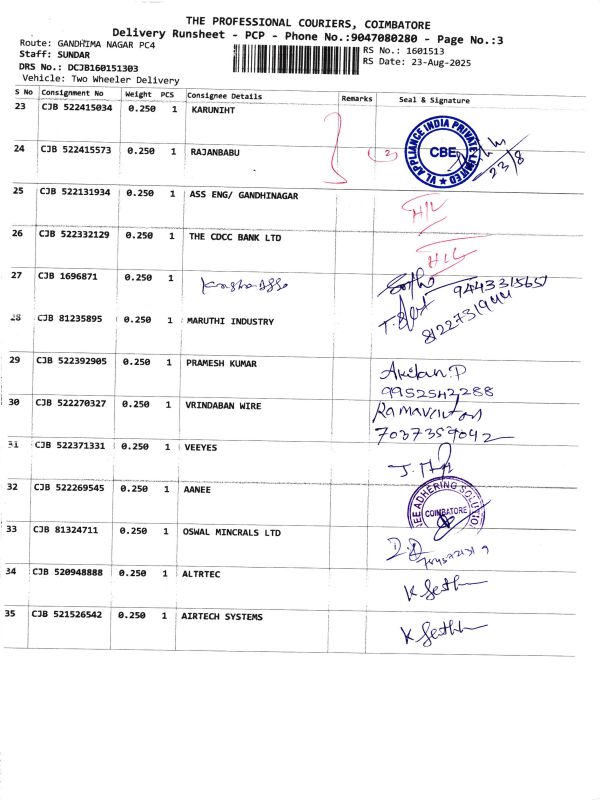 THE PROFESSIONAL COURIERS, COIMBATORE
Delivery Runsheet - PCP - Phone No.:9047080280 - Page No.:3
Route: GANDHIMA NAGAR PC4
RS No.: 1601513
Staff: SUNDAR
RS Date: 23-Aug-2025
DRS No.: DCJB160151303
Vehicle: Two Wheeler Delivery
S No Consignment No Weight PCS Consignee Details Remarks Seal & Signature
23 CJB 522415034 0.250 1 KARUNIHT
VL APPLIANCE INDIA PRIVATE LIMITED
CBE
24 CJB 522415573 0.250 1 RAJANBABU (2) 23/8
25 CJB 522131934 0.250 1 ASS ENG/ GANDHINAGAR H/L
26 CJB 522332129 0.250 1 THE CDCC BANK LTD H/L
27 CJB 1696871 0.250 1
9443315651
28 CJB 81235895 0.250 1 MARUTHI INDUSTRY
8122731944
29 CJB 522392905 0.250 1 PRAMESH KUMAR Akilan.P
9952542288
30 CJB 522270327 0.250 1 VRINDABAN WIRE
7037359042
31 CJB 522371331 0.250 1 VEEYES
32 CJB 522269545 0.250 1 AANEE
NEE ADHERING SOLUTION
COIMBATORE
33 CJB 81324711 0.250 1 OSWAL MINCRALS LTD
34 CJB 520948888 0.250 1 ALTRTEC
35 CJB 521526542 0.250 1 AIRTECH SYSTEMS